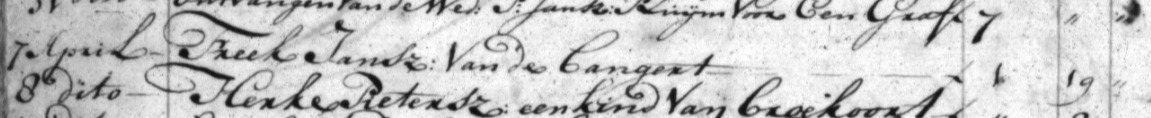 ontvangen van de Wed: P: Jansz: Kuijm voor Een Graf 7 " "
7 April - Freek Jansz: van de Cangert 1 19 "
8 dito - Henke Pietersz: een kind van Croijkoort